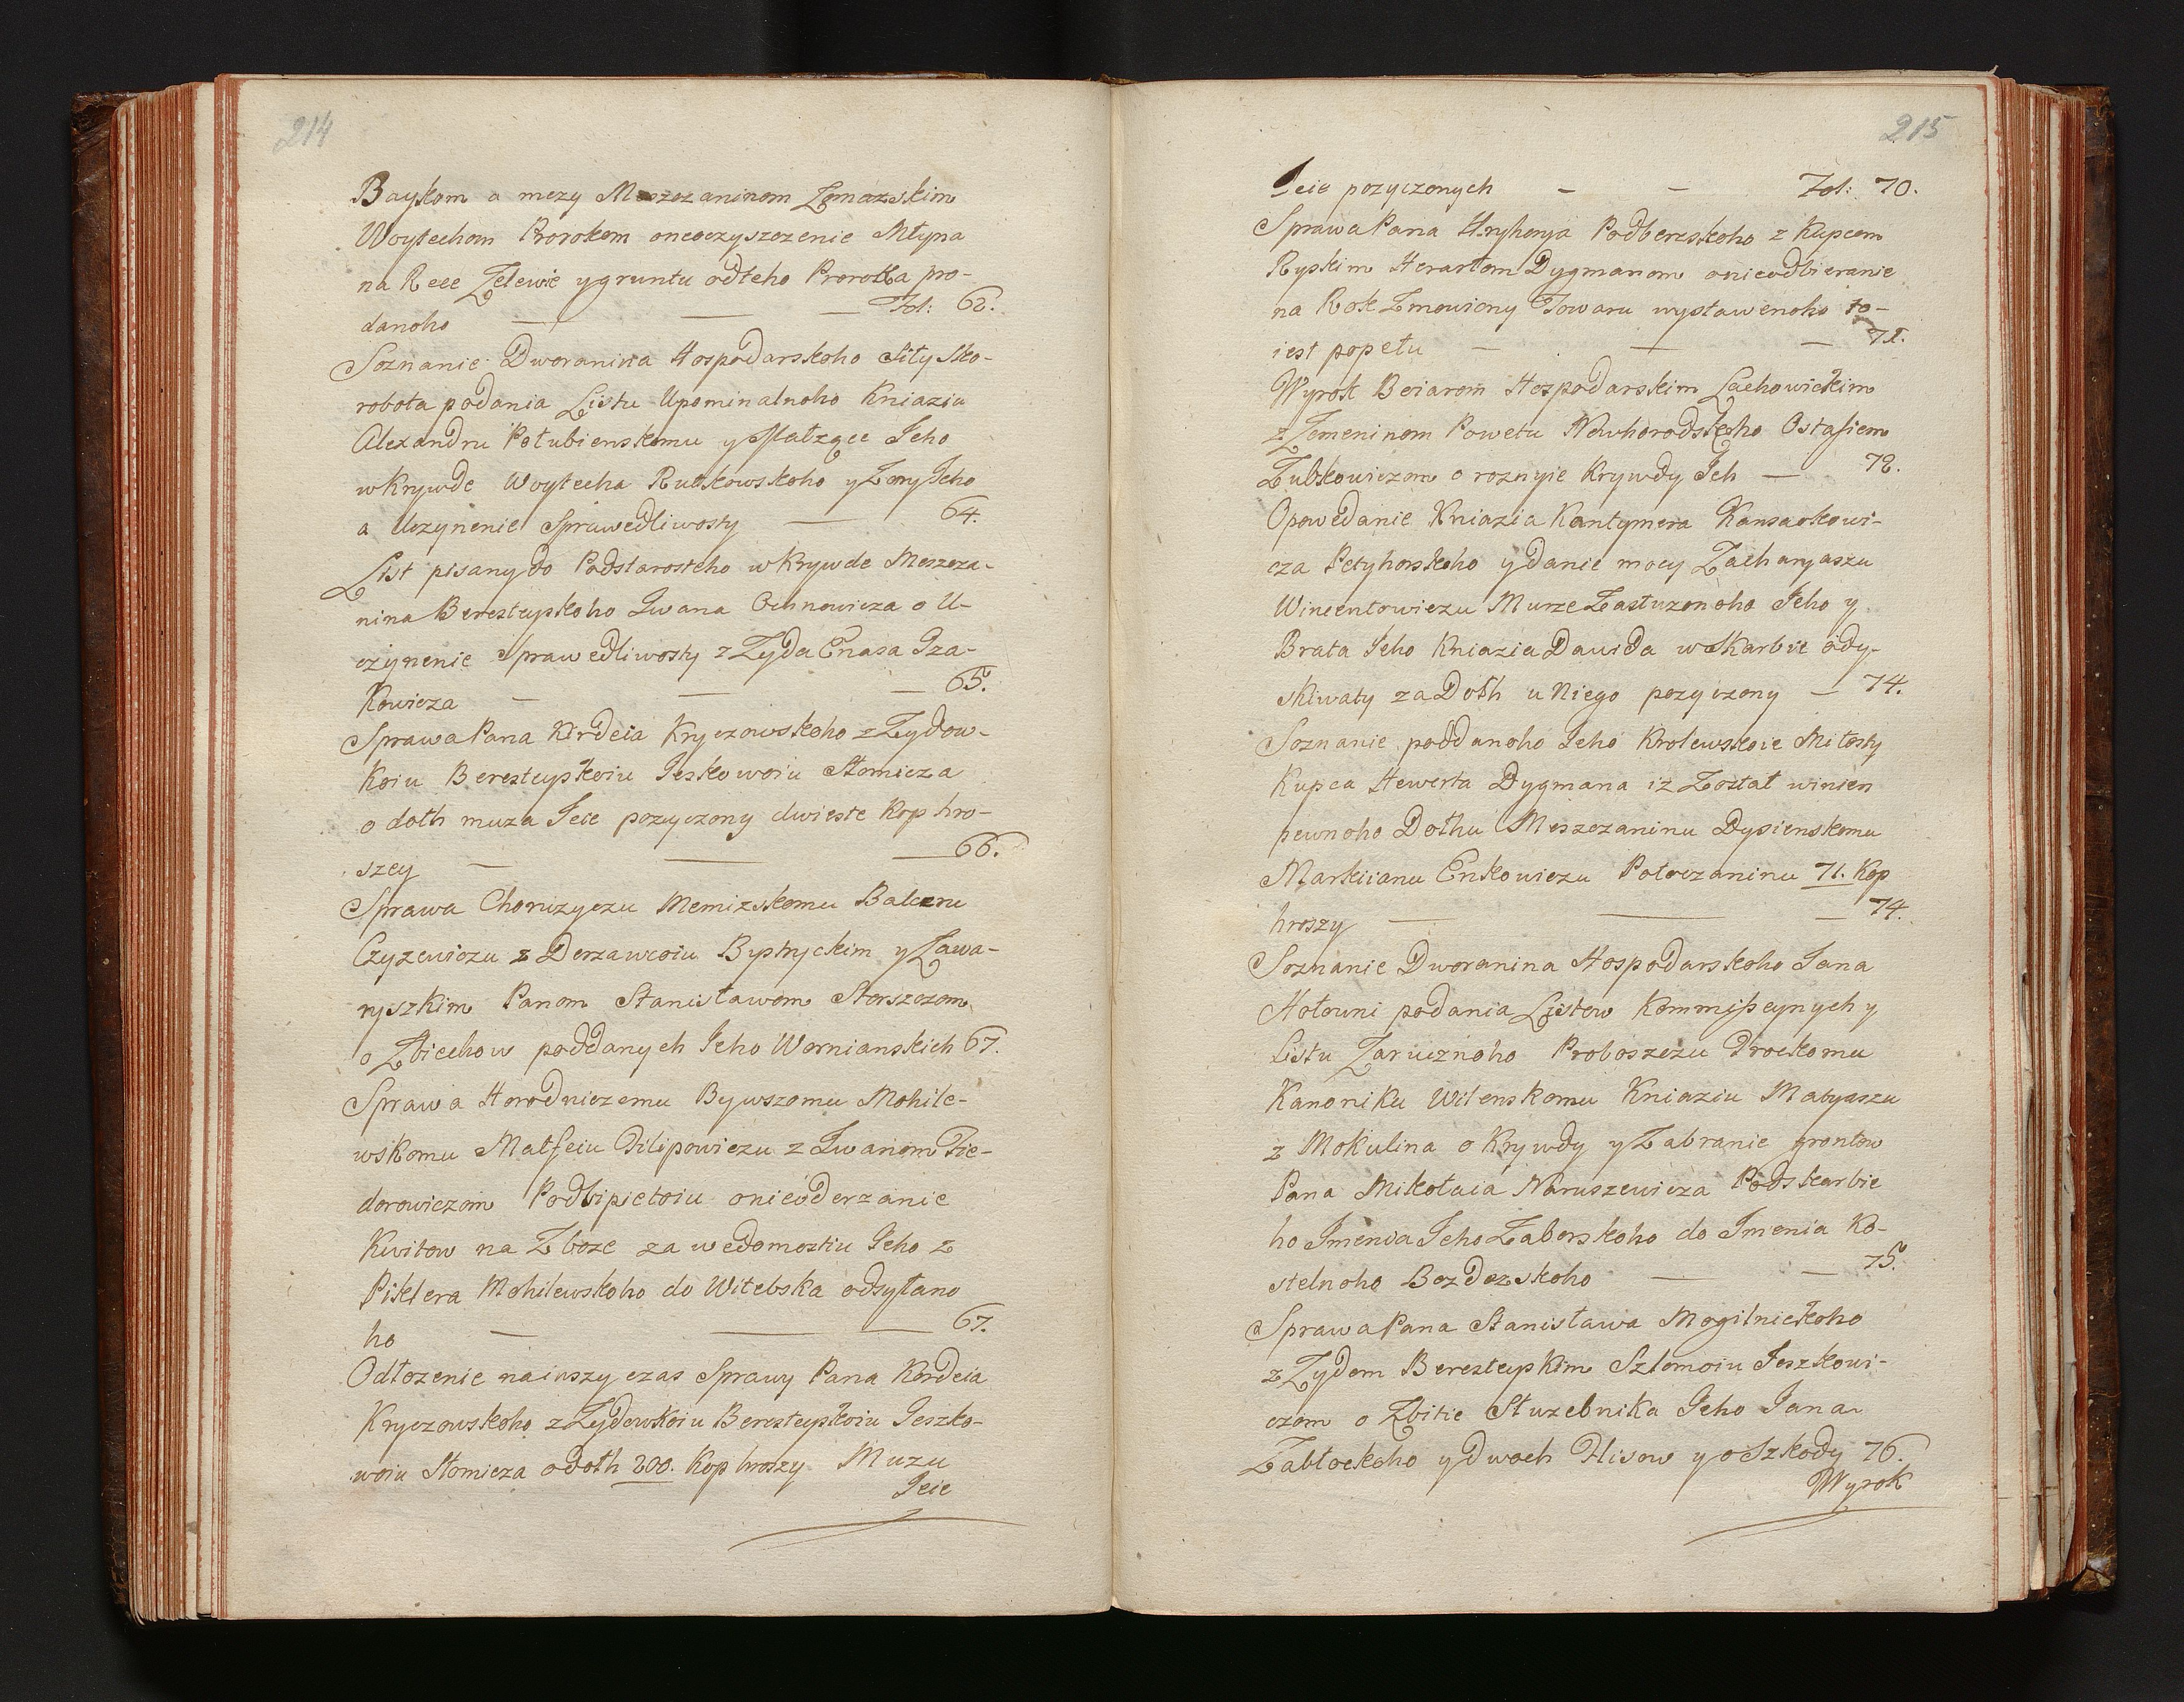 214
Baykom a mezy Meszczaninom Łomazskim
Woytechom Prorokom oneoczyszczenie Młyna
na Rece Zelewie y gruntu odteho Proroka pro-
danoho — — — Fol: 62.
Soznanie Dworanina Hospodarskoho Siły Sko-
robota podania Listu Upominalnoho Kniaziu
Alexandru Połubienskomu y Małzące Jeho
w Krywde Woytecha Rutkowskoho y Zony Jeho
a Uczynenie Sprawedliwosty — 64.
List pisany do Podstarosteho w Krywde Meszcza-
nina Beresteyskoho Iwana Ochnowicza o U-
czynenie Sprawedliwosty z Zyda Enasa Iza-
kowicza — — — 65.
Sprawa Pana Kirdeia Kryczowskoho z Zydow-
koiu Beresteyskoiu Jeskowoiu Słomicza
o dołh muza Jeie pozyczony dwieste kop hro-
szey — — — 66.
Sprawa Choruzyczu Memizskomu Balceru
Czyzewiczu z Derzawcoiu Bystryckim y Ława-
ryszkim Panom Stanisławom Storszczom
o Zbiechow poddanych Jeho Wornianskich 67.
Sprawa Horodniczemu Bywszomu Mohile-
wskomu Matfeiu Filipowiczu z Iwanom Fie-
dorowiczom Podbipietoiu onieoderzanie
Kwitow na Zboze za wedomostiu Jeho z
Piklera Mohilewskoho do Witebska odsyłano
ho — — — 67.
Odłozenie nainszy czas Sprawy Pana Kirdeia
Kryczowskoho z Zydowkoiu Beresteyskoiu Jeszko-
woiu Słomicza o dołh 200. Kop hroszy Muzu
Jeie
215
Jeie pozyczonych — — Fol: 70.
Sprawa Pana Hryhorya Podberezskoho z Kupcem
Ryskim Herartom Dygmanom onieodbieranie
na Rok Zmowiony Towaru wystawenoho to-
iest popełu — — — 71.
Wyrok Boiarom Hospodarskim Lachowickim
z Zemeninom Powetu Nowhorodskoho Ostafiem
Zubkowiczom o roznyie Krywdy Jch — 72.
Opowedanie Kniazia Kantymera Kansaokowi-
cza Petyhorskoho y danie mocy Zacharyaszu
Wincentowiczu Murze Zasłuzonoho Jeho y
Brata Jeho Kniazia Dawida w Skarbie ody-
skiwaty za Dołh u Niego pozyczony — 74.
Soznanie poddanoho Jeho Krolewskoie Miłosty
Kupca Hewerta Dygmana iz Został winien
pewnoho Dołhu Meszczaninu Dysienskomu
Markiianu Enkowiczu Połoczaninu 71. Kop
hroszy — — — 74.
Soznanie Dworanina Hospodarskoho Jana
Hołowni podania Listow Kommissyynych y
Listu Zarucznoho Proboszczu Trockomu
Kanoniku Wilenskomu Kniaziu Matyaszu
z Mokulina o Krywdy y Zabranie grontow
Pana Mikołaia Naruszewicza Podskarbie
ho Jmenia Jeho Zaborskoho do Jmenia Ko-
stelnoho Bozdezskoho — — 75.
Sprawa Pana Stanisława Mogilnickoho
z Zydem Beresteyskim Szlomoiu Jeszkowi-
czom o Zbitie Słuzebnika Jeho Jana
Zabłockoho y Dwoch Hlisow y o Szkody 76.
Wyrok